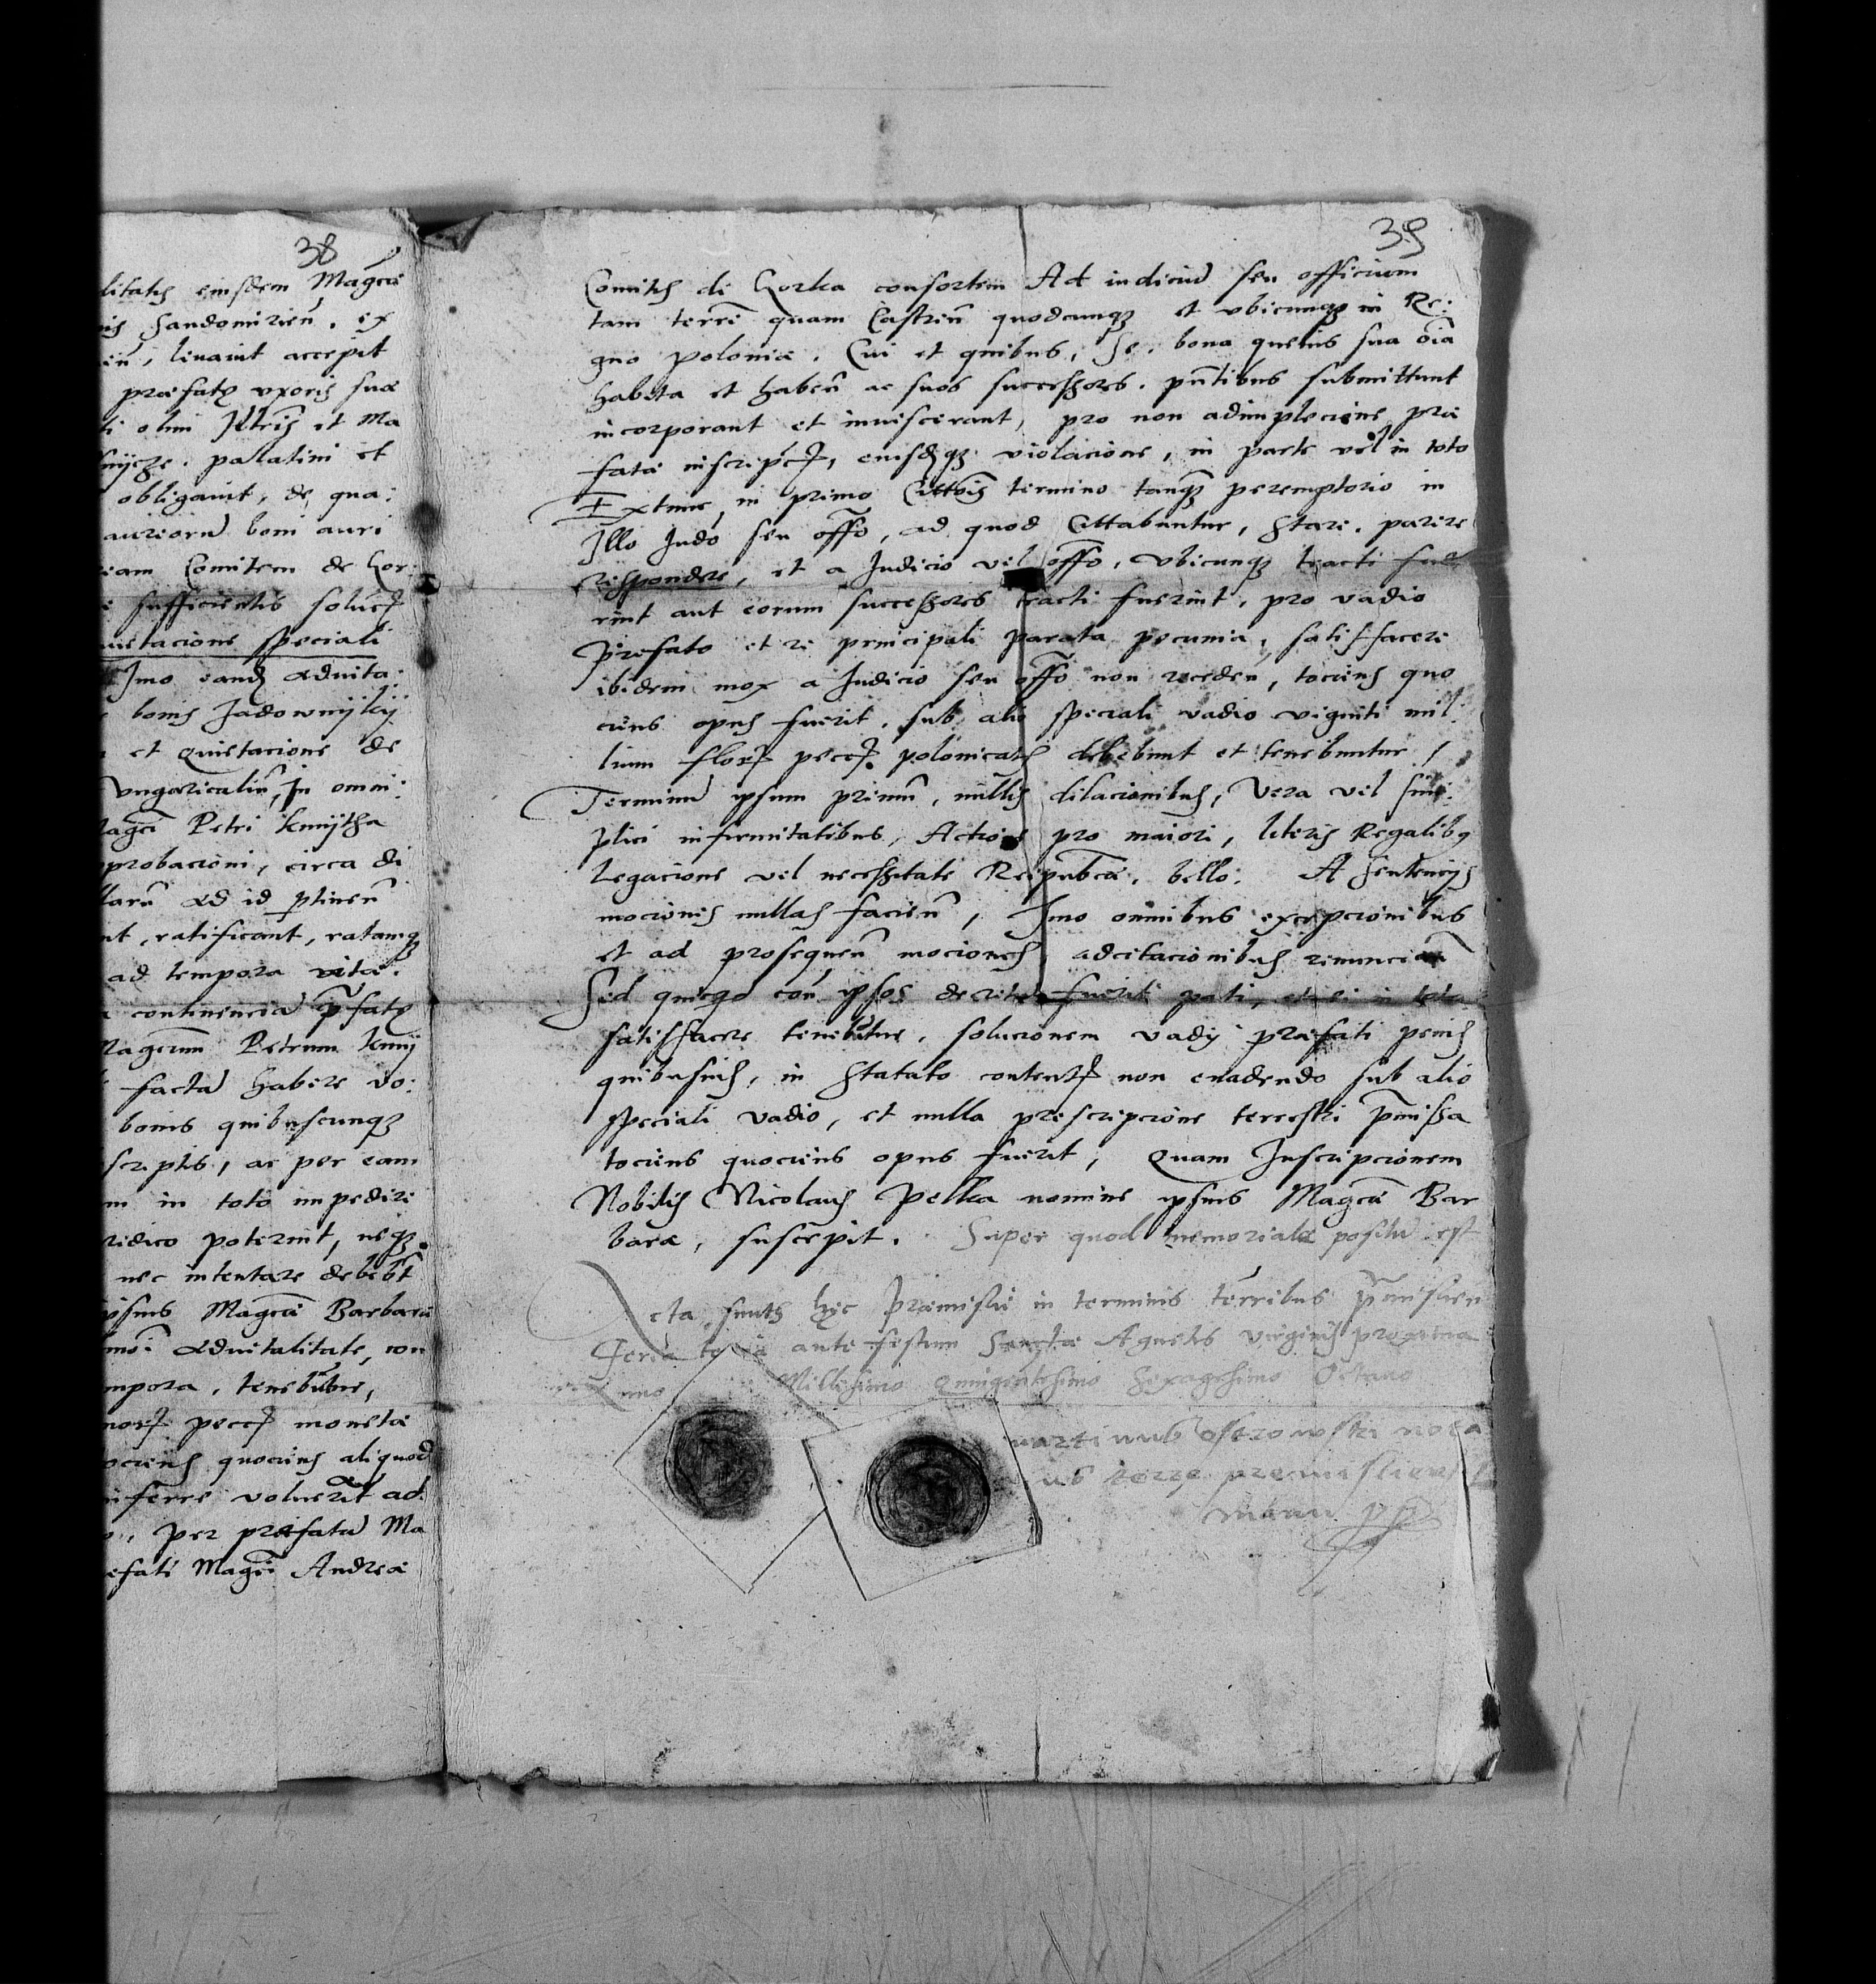 38
litatis eiusdem Magcæ
nis Sandomirien̄. ex
en̄, levavit accepit
præfatæ uxoris suæ
ti olim Illtris et Ma
palatini et
obligavit, de qua:
aureorū boni auri
Comitem de Gor:
sufficientis soluc̄
uietacione speciali
Imo eandē advita:
bonis Jadownijkij
et quietacione de
Vngaricaliū, In omni:
Magcī Petri Kmijtha
probacioni, circa di
larū ad id ptinen̄
nt, ratificant, ratamqȝ
ad tempora vitæ.
continenciā p̄fatæ
Magcum Petrum Kmij
factā habere vo:
bonis quibuscunqȝ
scriptis, ac per eam
m in toto impedire
ridico poterint, neqȝ
nec intentare debebt̄
ipsius Magcæ Barbaræ
advitalitate, con
mpora, tenebūtur,
pecc̄ monetæ
ociens quociens aliquod
inferre voluerīt ad.
o, per præfatā Ma
efati Magcī Andreæ
39
Comitis de Gorka consortem Ad iudiciū seu officium
tam terrē quam Castren̄ quodcunqȝ et vbicunqȝ in Re:
gno poloniæ. Cui et quibus, Se. bona quevis sua oīa
habita et haben̄ ac suos successores. pn̄tibus submittunt
incorporant et inviscerant, pro non adimplecione præ
fatæ inscripc̄, eiusdēqȝ violacione, in parte vel in toto
Extunc, in primo Cittois̄ termino tanqȝ peremptorio in
Illo Judō seu off̄o, ad quod Cittabuntur, Stare. parere
respondere, et a Judicio vel off̄o, vbicunqȝ tracti fue
rint aut eorum successores tracti fuerint, pro vadio
Prefato et re principali parata pecunia, satisfacere
ibidem mox a Judicio seu off̄o non receden̄, tociens quo
ciens opus fuerit. sub alio speciali vadio viginti mil
lium flor̄ pecc̄. polonicatis debebunt et tenebuntur /
Terminū ipsum primū, nullis dilacionibus, Vera vel sim:
plici infirmitatibus, Actione pro maiori, literis Regalibȝ
Legacione vel necessitate Reipubcæ, bello. A Sentencijs
mociones nullas facien̄, Imo omnibus excepcionibus
et ad prosequen̄ mociones, adcitacionibus
Sed quicqd con̄ ipsos fuerit pati, et ei in toto
satisfacere tenebūtur, solucionem vadij præfati penis
quibusvis, in Statuto content̄ non evadendo sub alio
speciali vadio, et nulla prescripcione terrestri p̄missa
tociens quociens opus fuerit, Quam Inscripcionem
Nobilis Nicolaus Pelka nomine ipsius Magcæ Bar
baræ, suscepit. Super quod memoriale positū est
Acta sunt hęc Præmisliæ in terminis terribus p̄misłien
Feria tercia ante festum Sanctæ Agnetis virginis proxima
Anno Millesimo Quingentesimo Sexagesimo Octavo
martinus ostrowski nota
us terræ premisliensis
manu pp